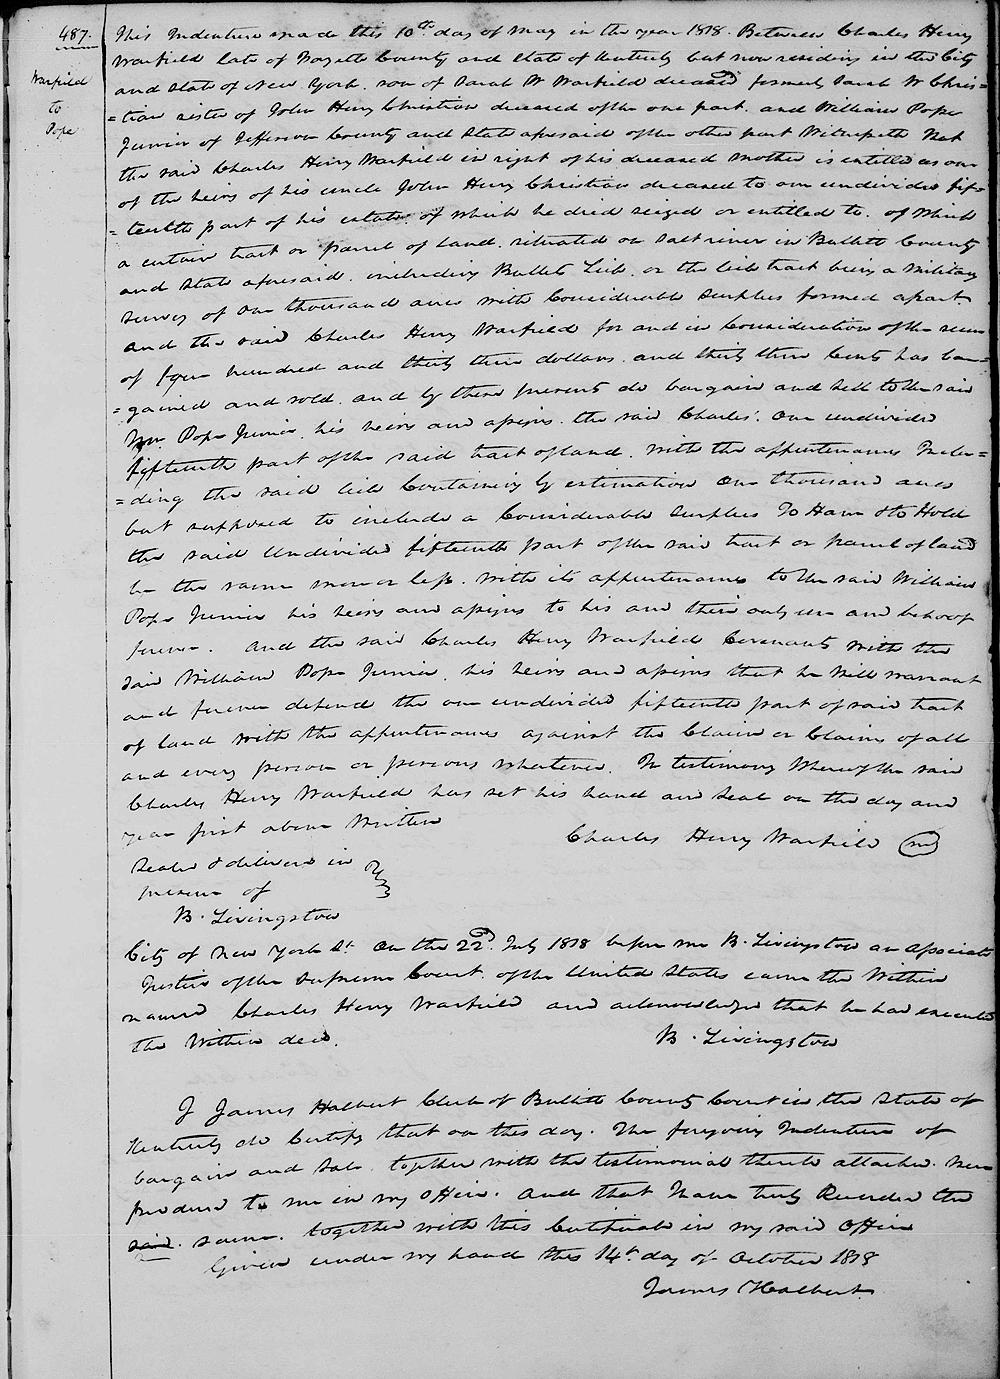 487.
Warfield
to
Pope
This Indenture made this 10th day of May in the year 1818. Between Charles Henry
Warfield late of Fayette County and State of Kentucky but now residing in the City
and State of New York. son of Sarah W Warfield deceased formerly Sarah W Chris=
=tian sister of John Henry Christian deceased of the one part. and William Pope
Junior of Jefferson County and State aforesaid of the other part Witnesseth that
the said Charles Henry Warfield in right of his deceased Mother is entitled as one
of the heirs of his uncle John Henry Christian deceased to one undivided fif=
=teenth part of his estate of which he died seized or entitled to. of which
a certain tract or parcel of Land. situated on Salt river in Bullitt County
and State aforesaid. including Bullitts Lick. or the lick tract being a Military
Survey of One thousand acres with Considerable Surplus formed apart.
And the said Charles Henry Warfield for and in Consideration of the sum
of four hundred and thirty three dollars. and thirty three Cents has bar=
=gained and sold. and by these presents do bargain and sell to the said
Wm Pope Junior. his heirs and assigns. the said Charles'. One undivided
fifteenth part of the said tract of land. with the appurtenances Inclu=
=ding the said lick Containing by estimation One thousand acres
but supposed to include a Considerable Surplus To Have & to Hold
the said Undivided fifteenth part of the said tract or parcel of land
be the same more or less. with its appurtenances to the said William
Pope Junior his heirs and assigns to his and their only use and behoof
forever. And the said Charles Henry Warfield Covenants with the
said William Pope Junior. his heirs and assigns that he will warrant
and forever defend the one undivided fifteenth part of said tract
of land with the appurtenances against the Claim or Claims of all
and every person or persons whatever. In testimony Whereof the said
Charles Henry Warfield has set his hand and Seal on the day and
year first above Written
Charles Henry Warfield
Sealed & delivered in
presence of
B. Livingston
City of New York St. On the 22d. July 1818 before me B. Livingston an Associate
Justice of the Supreme Court. of the United States came the Within
named Charles Henry Warfield and acknowledged that he had executed
the Within deed.
B. Livingston
I James Halbert Clerk of Bullitt County Court in the State of
Kentucky do Certify that on this day. The foregoing Indenture of
bargain and Sale. together with the testimonial thereto attached. were
produced to me in my Office. And that I have truly Recorded the
said. same. together with this Certificate in my said Office
Given under my hand this 14th day of October 1818
James Halbert